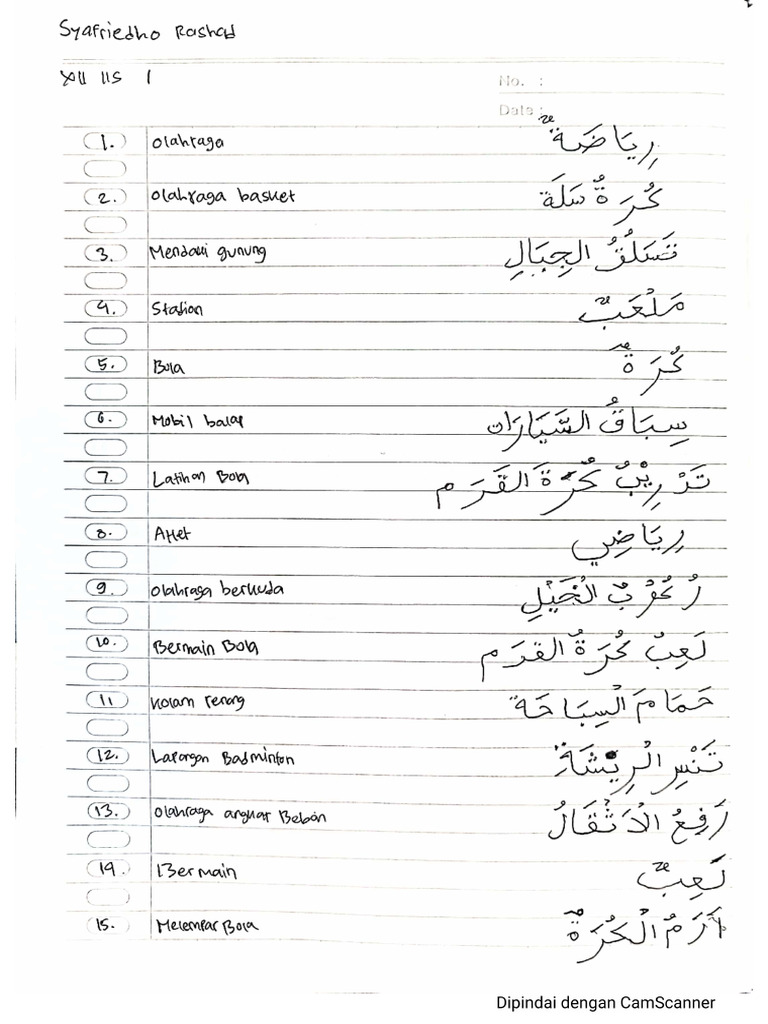 Syafriedho Rashad
XII IIS 1
No. :
Date :
1. olahraga رِيَاضَةٌ
2. olahraga basket كُرَةُ سَلَة
3. Mendaki gunung تَسَلُقُ الجِبَالِ
4. Stadion مَلْعَبٌ
5. Bola كُرَةٌ
6. Mobil balap سِبَاقُ السَّيَارَات
7. Latihan Bola تَدْرِيْبُ كُرَةَ القَدَم
8. Atlet رِيَاضِي
9. olahraga berkuda رُكُوْبُ الْخَيْلِ
10. Bermain Bola لَعِبُ كُرَةُ القَدَم
11 kolam renang حَمَامَ الْسِبَاحَة
12. Lapangan Badminton تَنْسِ الْرِيْشَةِ
13. olahraga angkat Beban رَفِعُ الْاَثْقَالُ
14. Bermain لَعِبٌ
15. Melempar Bola اَرَمُ الْكُرَةٌ
Dipindai dengan CamScanner